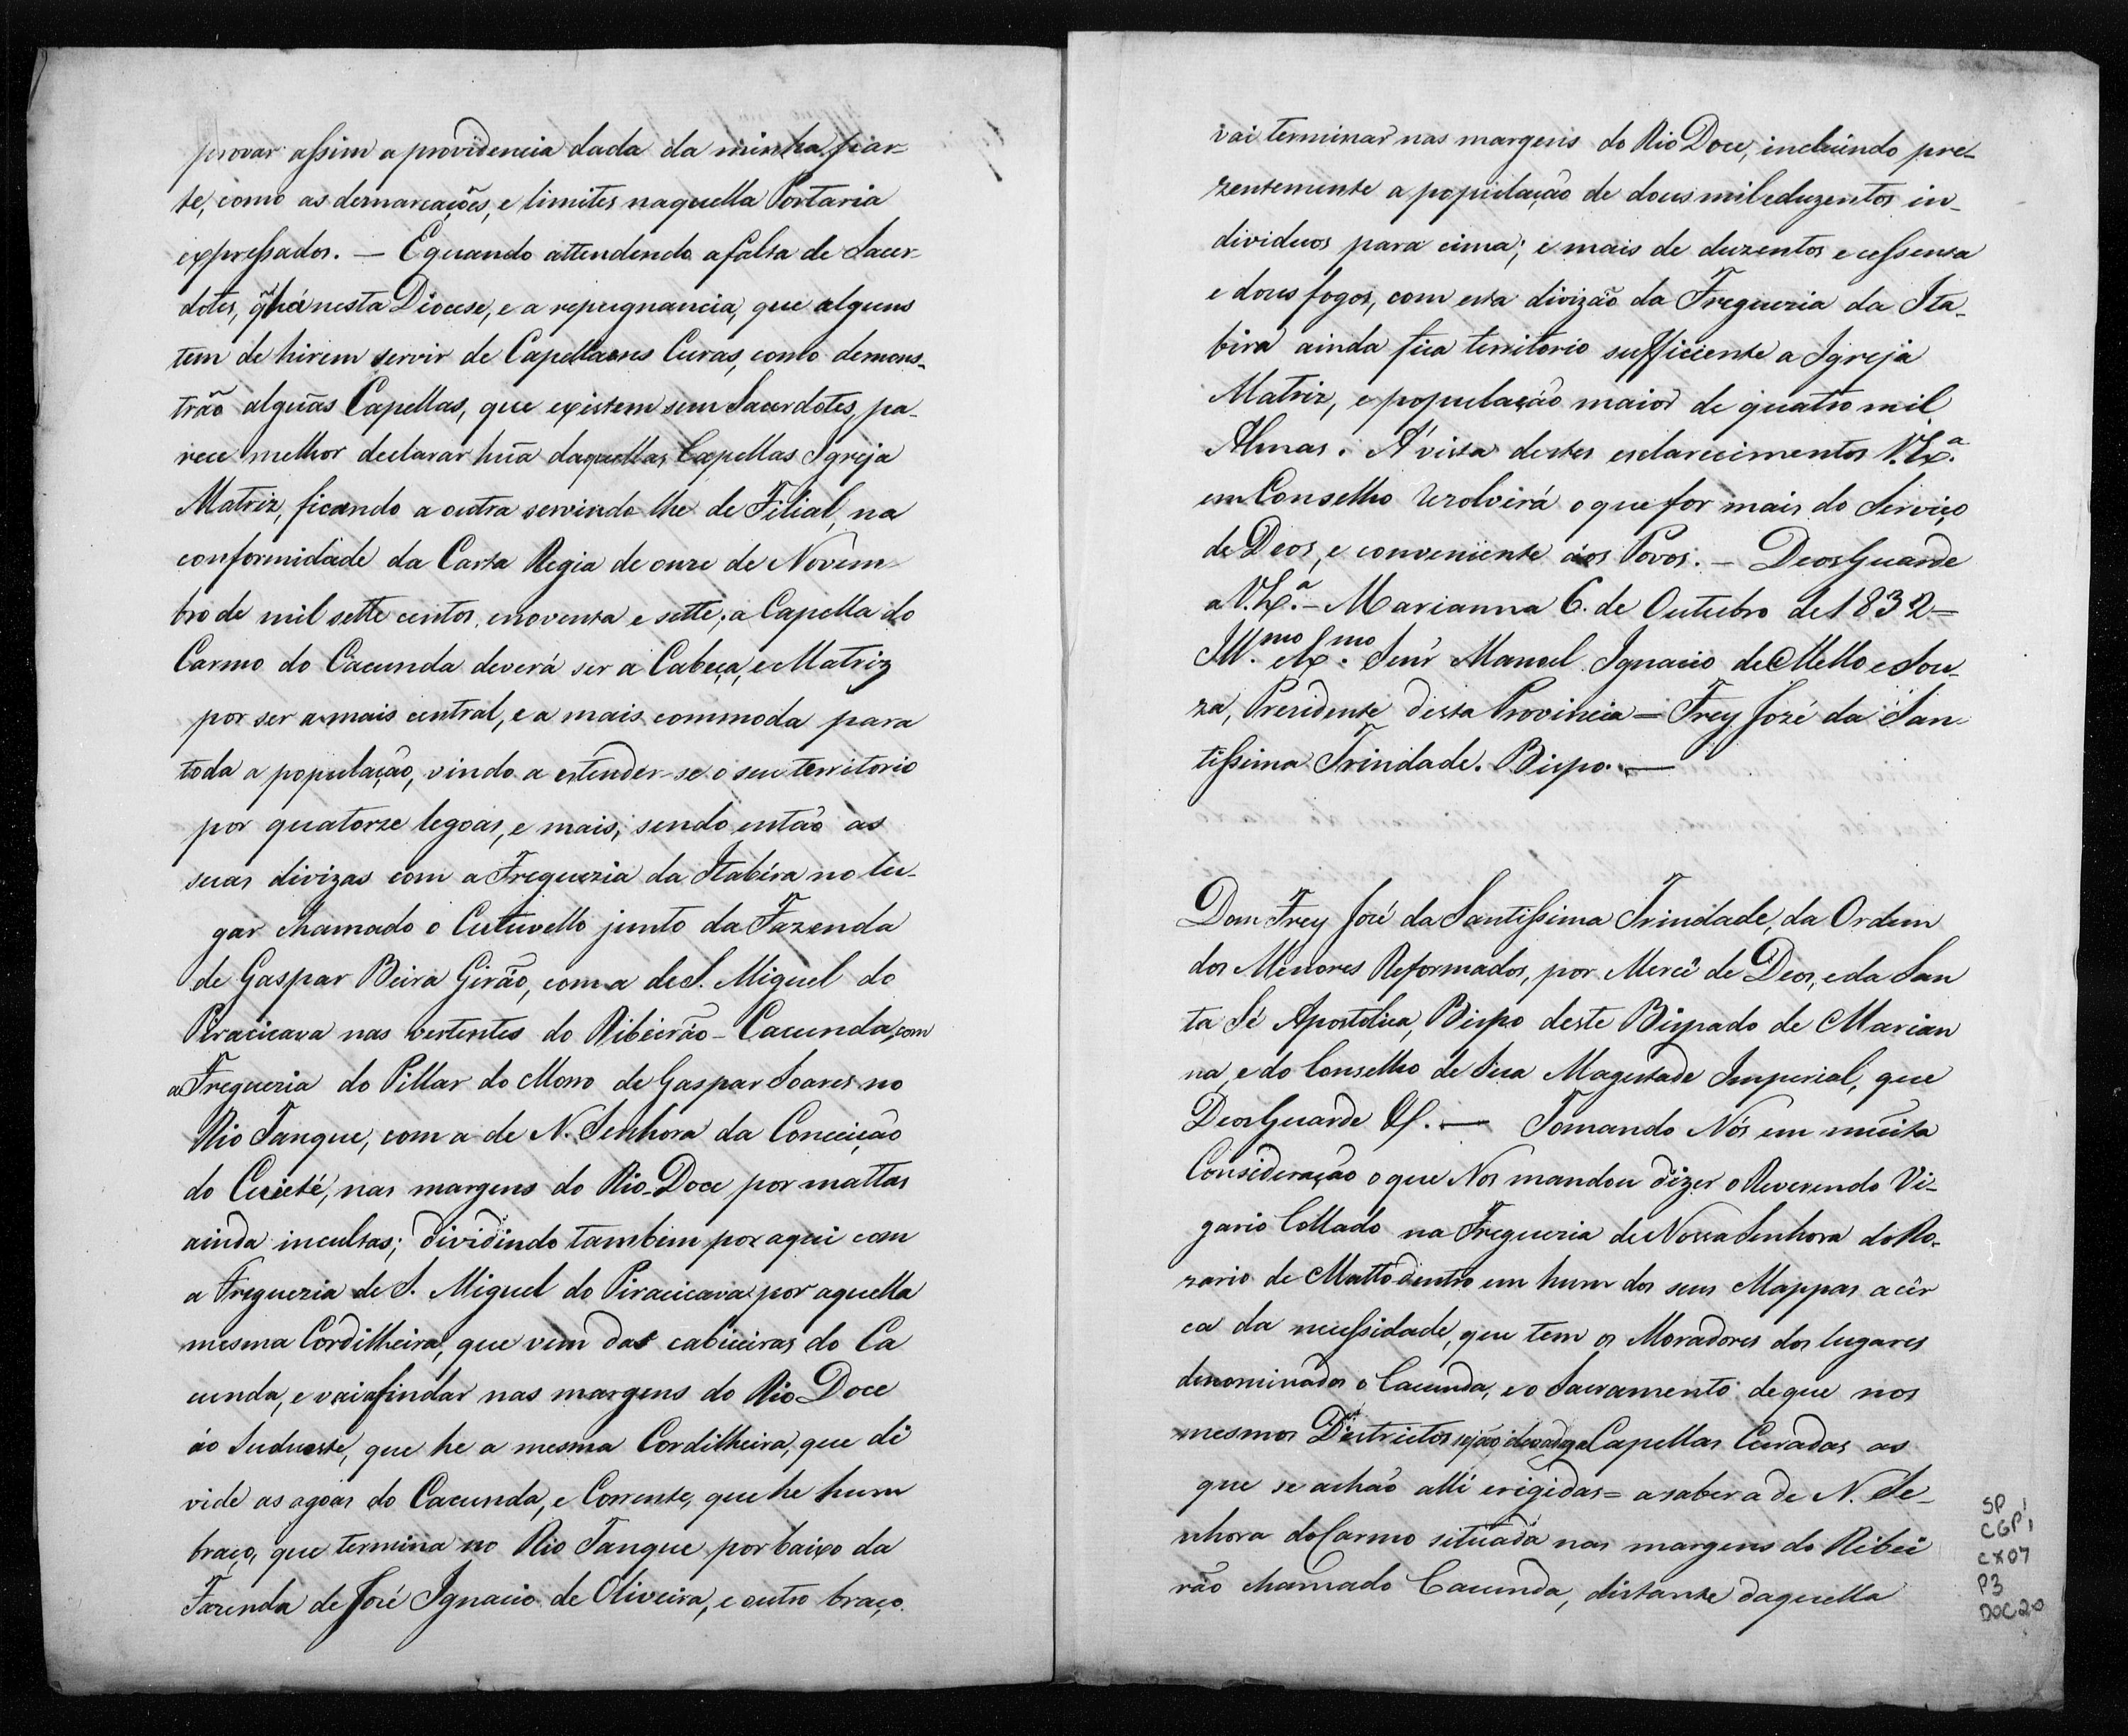 provar assim a providencia dada da minha par-
te, como as demarcações, e limites naquella Portaria
expressados. — E quando attendendo a falta de Sacer-
dotes, q̃ há nesta Diocese, e a repugnancia, que alguns
tem de hirem servir de Capellaens Curas, como demons-
trão algũas Capellas, que existem sem Sacerdotes, pa-
rece melhor declarar hũa daquellas Capellas Igreja
Matriz, ficando a outra servindo lhe de Filial, na
conformidade da Carta Regia de onze de Novem-
bro de mil sette centos, e noventa e sette; a Capella do
Carmo do Cacunda deverá ser a Cabeça, e Matriz
por ser a mais central, e a mais commoda para
toda a população, vindo a estender-se o seu territorio
por quatorze legoas, e mais, sendo então as
suas divizas com a Freguezia da Itabira no lu-
gar chamado o Cutuvello junto da Fazenda
de Gaspar Beira Girão, com a de S. Miguel do
Piracicava nas vertentes do Ribeirão-Cacunda, com
a Freguezia do Pillar do Morro de Gaspar Soares no
Rio Tanque, com a de N. Senhora da Conceição
do Cuieté, nas margens do Rio-Doce por mattas
ainda incultas; dividindo tambem por aqui com
a Freguezia de S. Miguel do Piracicava por aquella
mesma Cordilheira, que vem das cabiceiras do Ca
cunda, e vai a findar nas margens do Rio Doce
áo Sudueste, que he a mesma Cordilheira, que di
vide as agoas do Cacunda, e Corrente, que he hum
braço, que termina no Rio Tanque por baixo da
Fazenda de José Ignacio de Oliveira, e outro braço
vai terminar nas margens do Rio Doce, incluindo pre-
zentemente a população de dous mil e duzentos in-
dividuos para cima; e mais de duzentos e cessenta
e dous fogos, com esta divizão da Freguezia da Ita-
bira ainda fica territorio sufficiente a Igreja
Matriz, e população maior de quatro mil
Almas. Á vista destes esclarecimentos V. Ex.ª
em Conselho rezolverá o que for mais do Serviço
de Deos, e conveniente aos Povos. — Deos Guarde
a V. Ex.ª — Marianna 6. de Outubro de 1832 =
Ill.mo e Ex.mo Senr̃ Manoel Ignacio de Mello e Sou-
za, Presidente desta Provincia = Frey José da San
tissima Trindade. Bispo. —
Dom Frey José da Santissima Trindade, da Ordem
dos Menores Reformados, por Mercê de Deos, e da San
ta Sé Apostolica, Bispo deste Bispado de Marian
na, e do Conselho de Sua Magestade Imperial, que
Deos Guarde &. — Tomando Nós em muita
Consideração o que Nos mandou dizer o Reverendo Vi-
gario Collado na Freguezia de Nossa Senhora do Ro-
zario de Matto dentro em hum dos seus Mappas acêr
ca da necessidade, que tem os Moradores dos lugares
denominados o Cacunda, e o Sacramento de que nos
mesmos Districtos sejão Capellas Curadas as
que se achão alli erigidas = a saber a de N. Se-
nhora do Carmo situada nas margens do Ribei
rão chamado Cacunda, distante daquella
SP
CGP 1
CX07
P3
DOC20